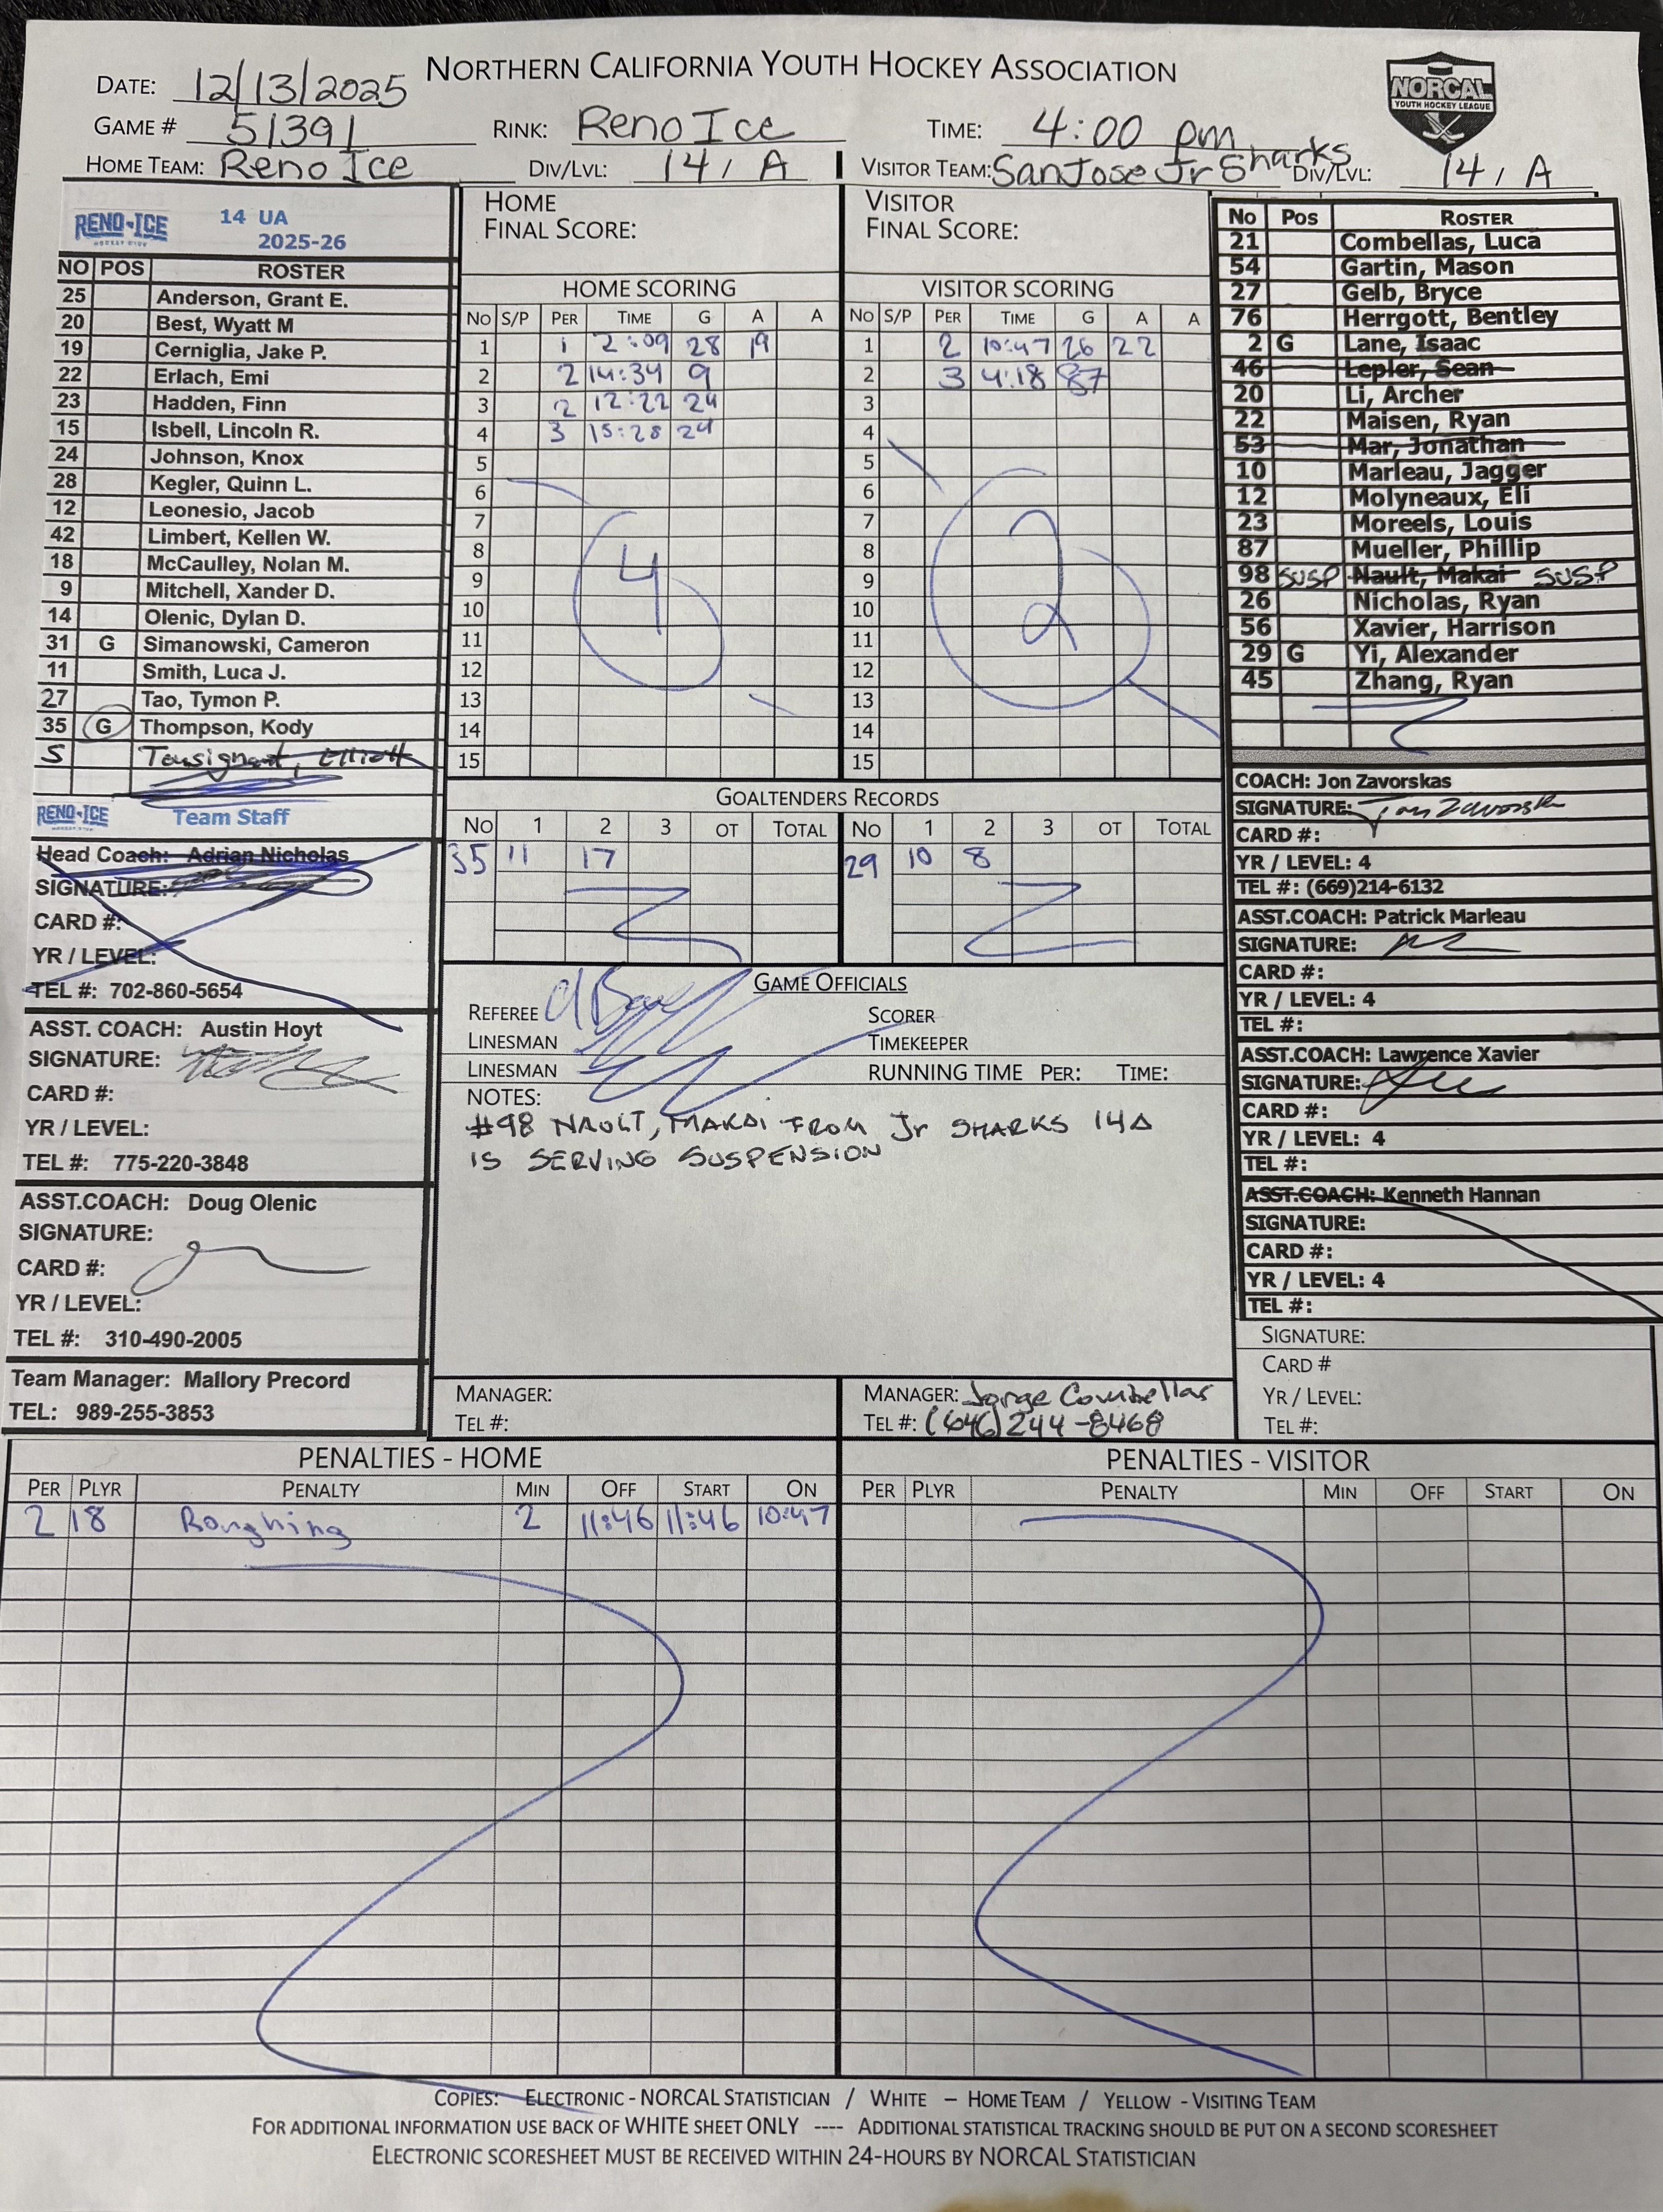 NORTHERN CALIFORNIA YOUTH HOCKEY ASSOCIATION
NORCAL
YOUTH HOCKEY LEAGUE
DATE: 12/13/2025
GAME # 51391 RINK: Reno Ice TIME: 4:00 pm
HOME TEAM: Reno Ice DIV/LVL: 14 / A VISITOR TEAM: San Jose Jr Sharks DIV/LVL: 14 / A
RENO ICE 14 UA
2025-26
NO POS ROSTER
25 Anderson, Grant E.
20 Best, Wyatt M
19 Cerniglia, Jake P.
22 Erlach, Emi
23 Hadden, Finn
15 Isbell, Lincoln R.
24 Johnson, Knox
28 Kegler, Quinn L.
12 Leonesio, Jacob
42 Limbert, Kellen W.
18 McCaulley, Nolan M.
9 Mitchell, Xander D.
14 Olenic, Dylan D.
31 G Simanowski, Cameron
11 Smith, Luca J.
27 Tao, Tymon P.
35 G Thompson, Kody
5 Tousignant, Elliott
RENO ICE Team Staff
Head Coach: Adrian Nicholas
SIGNATURE:
CARD #:
YR / LEVEL:
TEL #: 702-860-5654
ASST. COACH: Austin Hoyt
SIGNATURE:
CARD #:
YR / LEVEL:
TEL #: 775-220-3848
ASST.COACH: Doug Olenic
SIGNATURE:
CARD #:
YR / LEVEL:
TEL #: 310-490-2005
Team Manager: Mallory Precord
TEL: 989-255-3853
HOME
FINAL SCORE:
HOME SCORING
NO S/P PER TIME G A A
1 1 2:09 28 19
2 2 14:34 9
3 2 12:22 24
4 3 15:28 24
5
6
7
8
9
10
11
12
13
14
15
4
VISITOR
FINAL SCORE:
VISITOR SCORING
NO S/P PER TIME G A A
1 2 10:47 26 22
2 3 4:18 87
3
4
5
6
7
8
9
10
11
12
13
14
15
2
GOALTENDERS RECORDS
NO 1 2 3 OT TOTAL NO 1 2 3 OT TOTAL
35 11 17 29 10 8
GAME OFFICIALS
REFEREE SCORER
LINESMAN TIMEKEEPER
LINESMAN RUNNING TIME PER: TIME:
NOTES:
#98 NAULT, MAKAI FROM Jr SHARKS 14A
IS SERVING SUSPENSION
MANAGER: MANAGER: Jorge Combellas
TEL #: TEL #: (646) 244-8468
No Pos ROSTER
21 Combellas, Luca
54 Gartin, Mason
27 Gelb, Bryce
76 Herrgott, Bentley
2 G Lane, Isaac
46 Lepler, Sean
20 Li, Archer
22 Maisen, Ryan
53 Mar, Jonathan
10 Marleau, Jagger
12 Molyneaux, Eli
23 Moreels, Louis
87 Mueller, Phillip
98 SUSP Nault, Makai SUSP
26 Nicholas, Ryan
56 Xavier, Harrison
29 G Yi, Alexander
45 Zhang, Ryan
COACH: Jon Zavorskas
SIGNATURE: Jon Zavorskas
CARD #:
YR / LEVEL: 4
TEL #: (669)214-6132
ASST.COACH: Patrick Marleau
SIGNATURE:
CARD #:
YR / LEVEL: 4
TEL #:
ASST.COACH: Lawrence Xavier
SIGNATURE:
CARD #:
YR / LEVEL: 4
TEL #:
ASST.COACH: Kenneth Hannan
SIGNATURE:
CARD #:
YR / LEVEL: 4
TEL #:
SIGNATURE:
CARD #
YR / LEVEL:
TEL #:
PENALTIES - HOME PENALTIES - VISITOR
PER PLYR PENALTY MIN OFF START ON PER PLYR PENALTY MIN OFF START ON
2 18 Roughing 2 11:46 11:46 10:47
COPIES: ELECTRONIC - NORCAL STATISTICIAN / WHITE – HOME TEAM / YELLOW - VISITING TEAM
FOR ADDITIONAL INFORMATION USE BACK OF WHITE SHEET ONLY ---- ADDITIONAL STATISTICAL TRACKING SHOULD BE PUT ON A SECOND SCORESHEET
ELECTRONIC SCORESHEET MUST BE RECEIVED WITHIN 24-HOURS BY NORCAL STATISTICIAN